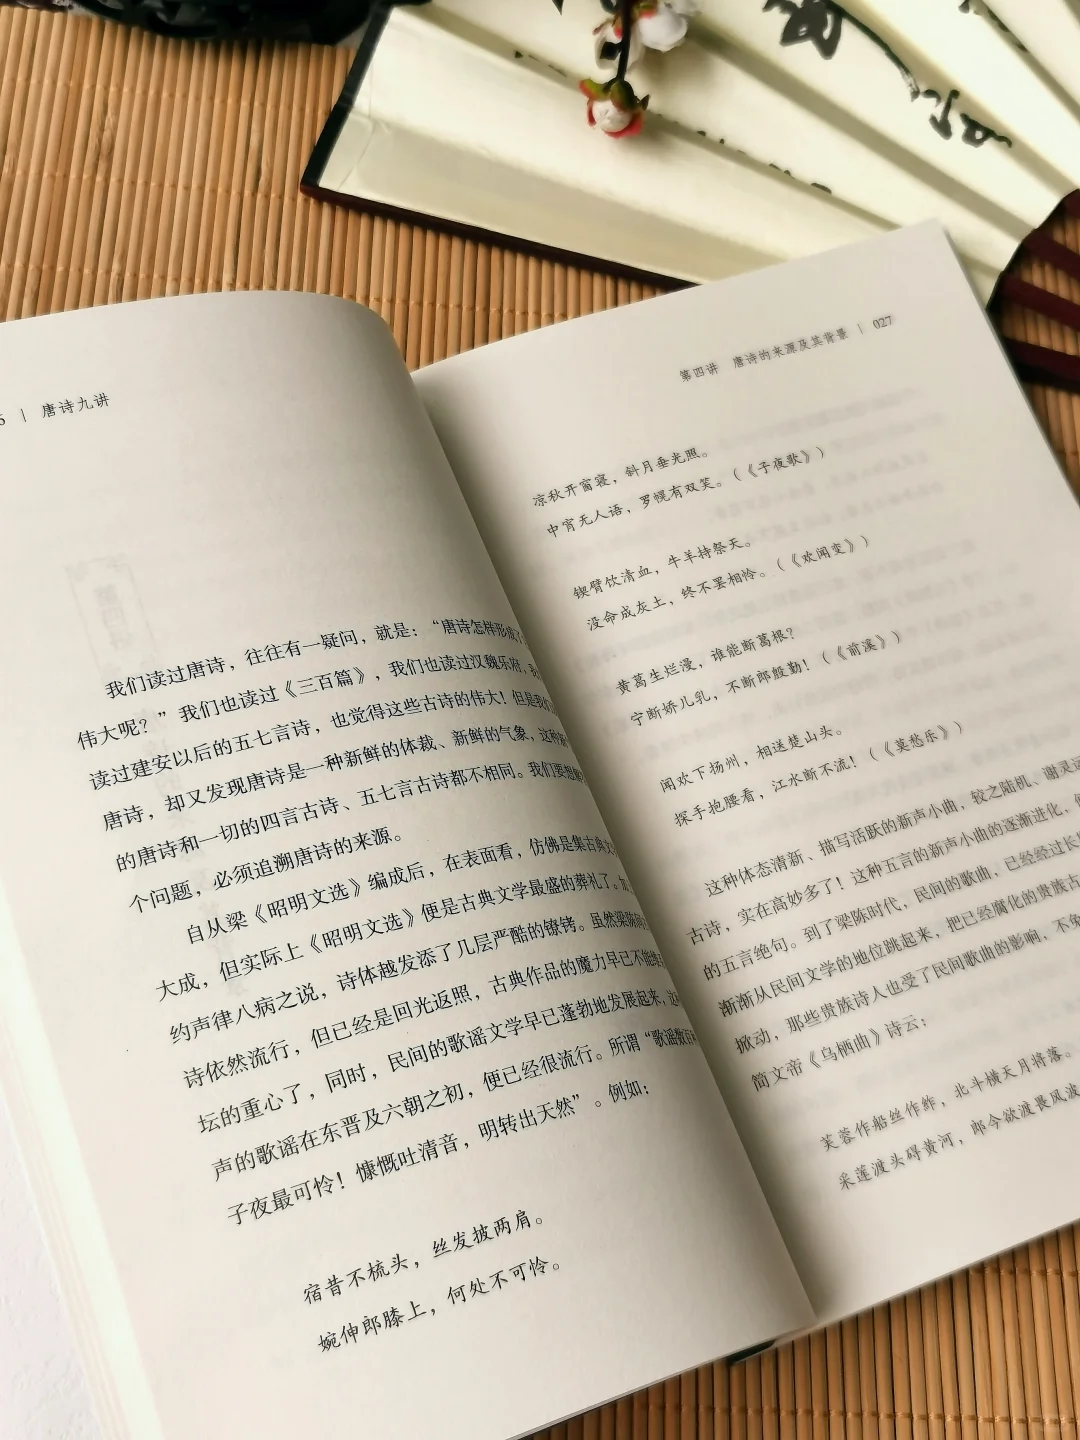 6 | 唐诗九讲
我们读过唐诗，往往有一疑问，就是：“唐诗怎样形成了
伟大呢？”我们也读过《三百篇》，我们也读过汉魏乐府，
读过建安以后的五七言诗，也觉得这些古诗的伟大！但是我们
唐诗，却又发现唐诗是一种新鲜的体裁、新鲜的气象，这种
的唐诗和一切的四言古诗、五七言古诗都不相同。我们要想
个问题，必须追溯唐诗的来源。
自从梁《昭明文选》编成后，在表面看，仿佛是集古典文
大成，但实际上《昭明文选》便是古典文学最盛的葬礼了。
约声律八病之说，诗体越发添了几层严酷的镣铐。虽然梁陈间
诗依然流行，但已经是回光返照，古典作品的魔力早已不能
坛的重心了，同时，民间的歌谣文学早已蓬勃地发展起来，
声的歌谣在东晋及六朝之初，便已经很流行。所谓“歌谣数百
子夜最可怜！慷慨吐清音，明转出天然”。例如：
宿昔不梳头，丝发披两肩。
婉伸郎膝上，何处不可怜。
第四讲 唐诗的来源及其背景 | 027
凉秋开窗寝，斜月垂光照。
中宵无人语，罗幌有双笑。（《子夜歌》）
锲臂饮清血，牛羊持祭天。
没命成灰土，终不罢相怜。（《欢闻变》）
黄葛生烂漫，谁能断葛根？
宁断娇儿乳，不断郎殷勤！（《前溪》）
闻欢下扬州，相送楚山头。
探手抱腰看，江水断不流！（《莫愁乐》）
这种体态清新、描写活跃的新声小曲，较之陆机、谢灵运
古诗，实在高妙多了！这种五言的新声小曲的逐渐进化，
的五言绝句。到了梁陈时代，民间的歌曲，已经经过长
渐渐从民间文学的地位跳起来，把已经腐化的贵族古
掀动，那些贵族诗人也受了民间歌曲的影响，不免
简文帝《乌栖曲》诗云：
芙蓉作船丝作䋏，北斗横天月将落。
采莲渡头碍黄河，郎今欲渡畏风波